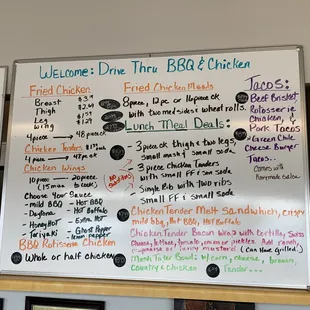 Welcome: Drive Thru BBQ & Chicken
Fried Chicken
Breast
Thigh
Leg
wing
4piece → 48piece
Chicken Tenders
4 piece → 48 piece
Chicken Wings
10piece 20piece
(15 mins to cook)
Choose Your Sauce
Mild BBQ - Hot BBQ
Daytona - Hot Buffalo
Honey Hot - Extra Hot
Teriyaki - Ghost Pepper
- Lemon pepper
BBQ Rotisserie Chicken
Whole or half chicken
Fried Chicken Meals
8piece, 12pc or 16piece
with two med sides & wheat rolls.
Lunch Meal Deals:
3 piece thigh & two legs,
small mash & small soda
3 piece Chicken Tenders
with small FF & sm soda
Single Rib with two ribs
small FF small soda
No substitutions
Chicken Tender Melt Sandwhich, crispy
mild bbq, Hot BBQ, Hot Buffalo
Chicken Tender Bacon Wrap with tortilla, Swiss
Cheese, lettuce, tomato, onion or pickles. Add ranch,
mayonaise or honey mustard (Can Have Grilled.)
Mash Tater Bowl: w/ corn, cheese, brown
Country & chicken Tender...
Tacos:
Beef Brisket,
Rotisserie
Chicken,
Pork Tacos
Green Chile
Cheese Burger
Tacos...
Comes with
Homemade Salsa